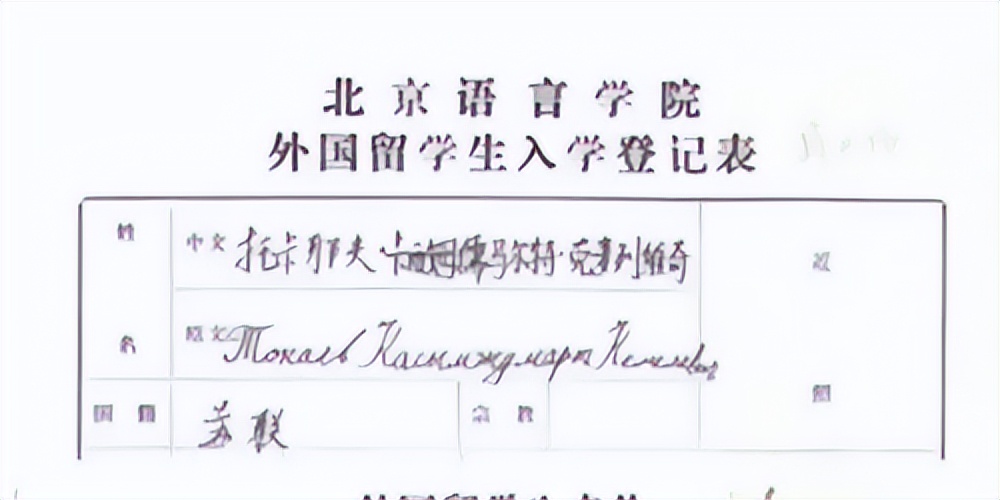 北京语言学院
外国留学生入学登记表
姓名 中文 托卡耶夫·卡马尔特·克麦列维奇
原文 Токаев Касымждмарт Кемелевич
国籍 苏联 宗教
照